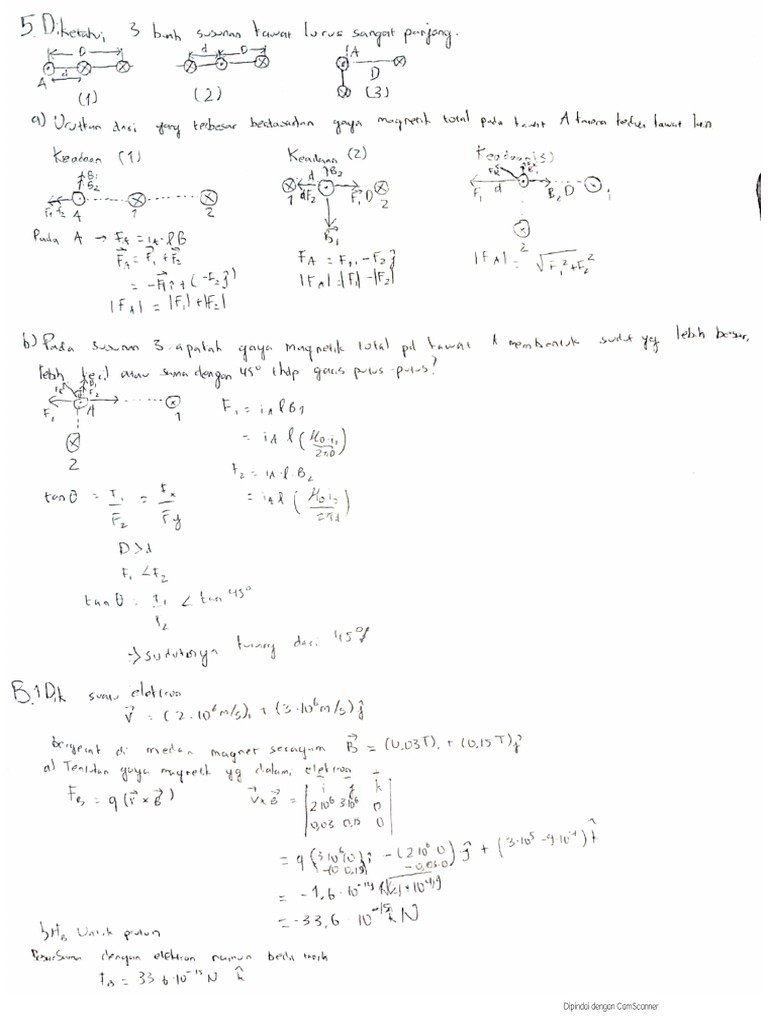 5. Diketahui 3 buah susunan kawat lurus sangat panjang.
D D A
d d D
A
(1) (2) (3)
a) Urutkan dari yang terbesar berdasarkan gaya magnetik total pada kawat A karena kedua kawat lain
Keadaan (1) Keadaan (2) Keadaan (3)
B1 B2
F1 F2 A 1 2
1 d F2 B2 F1 D 2
B1
F1 d B2 D 1
2
Pada A → FA = iA · l B
FA = F1 + F2
= -F1 î + (-F2 ĵ)
|FA| = |F1| + |F2|
FA = F1, - F2 ĵ
|FA| = |F1| - |F2|
|FA| = √F1² + F2²
b) Pada susunan 3 apakah gaya magnetik total pd kawat A membentuk sudut yg lebih besar,
lebih kecil atau sama dengan 45° thdp garis putus-putus?
F1 A F2 1
2
F1 = iA l B1
= iA l (μ0 i1 / 2πD)
F2 = iA · l · B2
= iA l (μ0 i2 / 2πd)
tan θ = F1 / F2 = Fx / Fy
D > d
F1 < F2
tan θ = F1 / F2 < tan 45°
→ sudutnya kurang dari 45°
B.1 Dik suatu elektron
v = (2·10⁶ m/s)i + (3·10⁶ m/s)ĵ
bergerak di medan magnet seragam B = (0,03T)i + (0,15T)ĵ
a) Tentukan gaya magnetik yg dalami elektron
FB = q(v × B)
v × B = | i j k |
2·10⁶ 3·10⁶ 0
0,03 0,15 0
= q (3·10⁶·0)î - (2·10⁶·0)ĵ + (3·10⁵ - 9·10⁴) k̂
-(0·0,15) -0,03·0
= -1,6·10⁻¹⁹
= -33,6 · 10⁻¹⁵ k̂ N
b) FB Untuk proton
Besar sama dengan elektron namun beda
FB = 33,6·10⁻¹⁵ N k̂
Dipindai dengan CamScanner